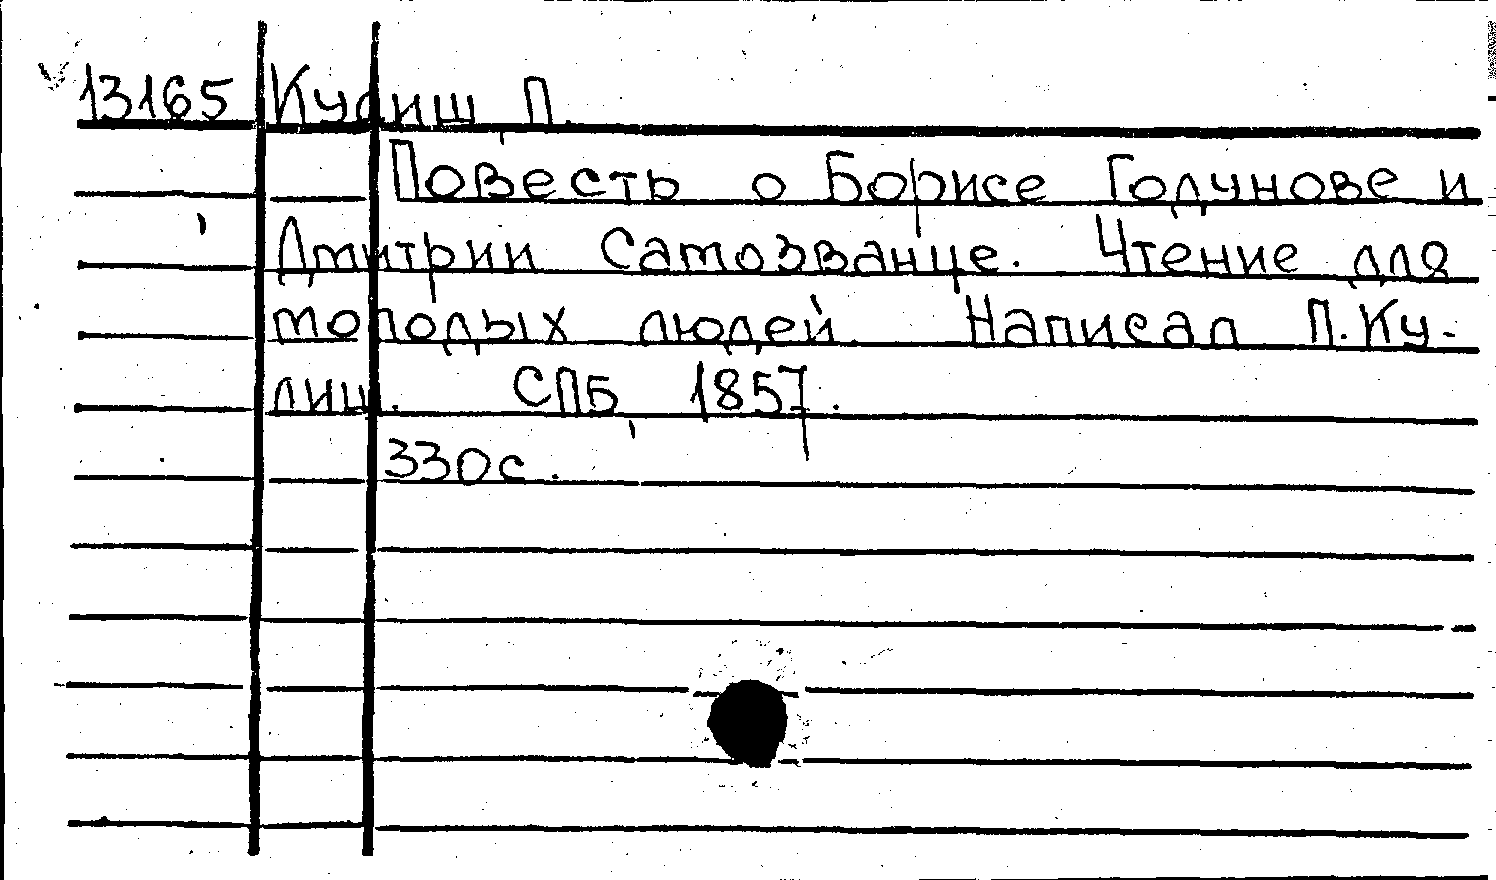 13165 Кулиш П.
Повесть о Борисе Годунове и
Дмитрии Самозванце. Чтение для
молодых людей. Написал П.Ку-
лиш. СПБ, 1857.
330с.